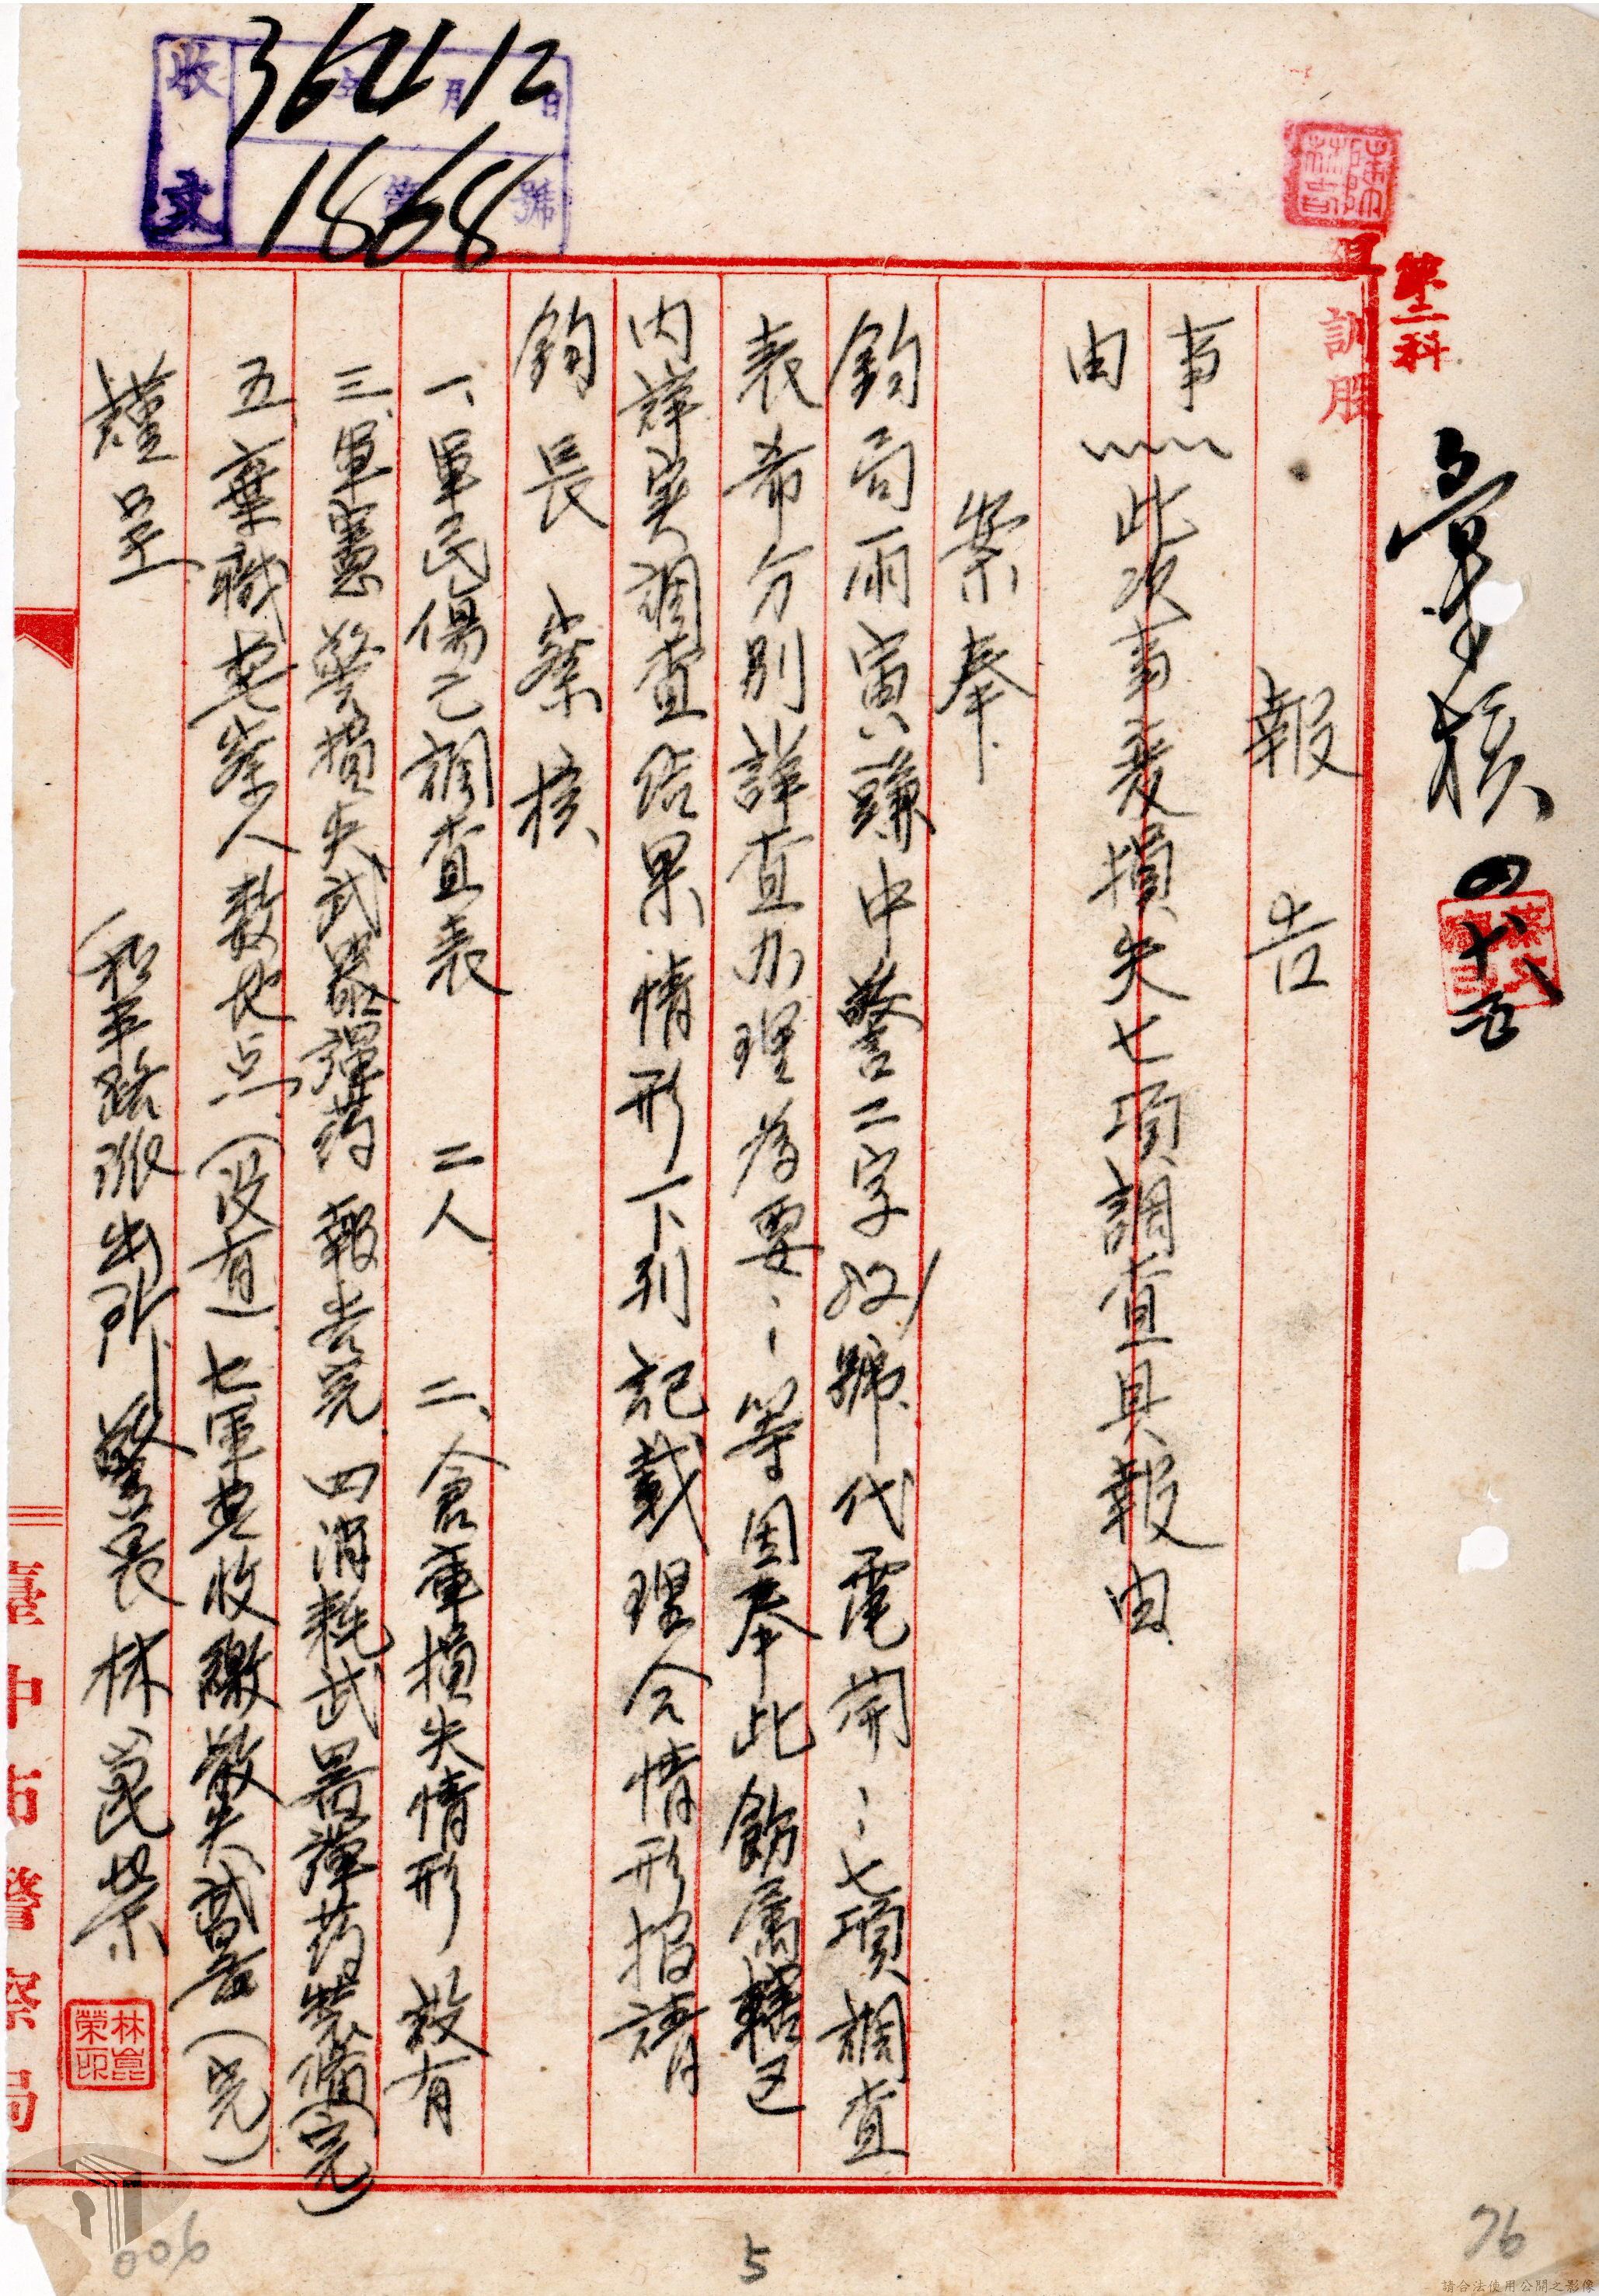 收文
36 4 12
年 月 日
1868
字 號
第二科
訓股
彙核 四
報告
事由 此次事变損失七項調查具報由
案奉
鈞局兩寅 中警二字 號代電開：七項調查
表希分別詳查办理為要：等因奉此飭属轄区
内詳実調查結果情形下列記載理合情形报請
鈞長 察核
一、軍民傷亡調查表 二人 二、倉庫損失情形 没有
三、軍憲警損失武器彈药 報告完 四消耗武器彈药裝備(完)
五棄職警察人数地点(没有) 七軍警收繳散失武器(完)
謹呈
和平路派出所警長 林崑荣
林崑榮印
臺中市警察局
006
5
76
請合法使用公開之影像